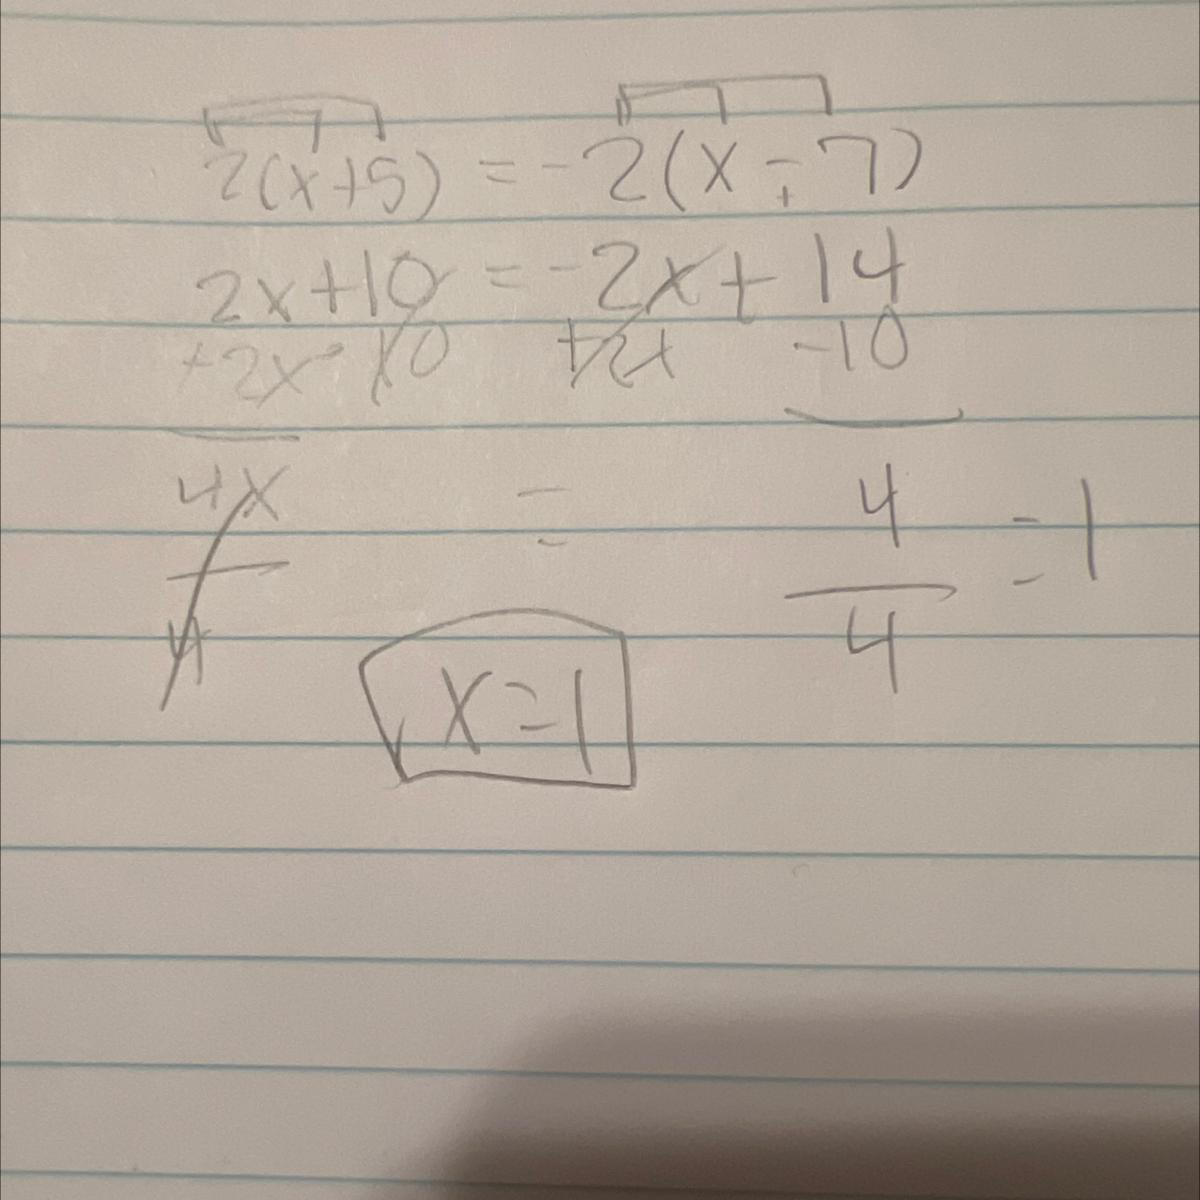 2(x+5) = -2(x - 7)
+
2x+10 = -2x + 14
+2x - 10 +2x -10
4x = 4 = 1
4 4
x=1